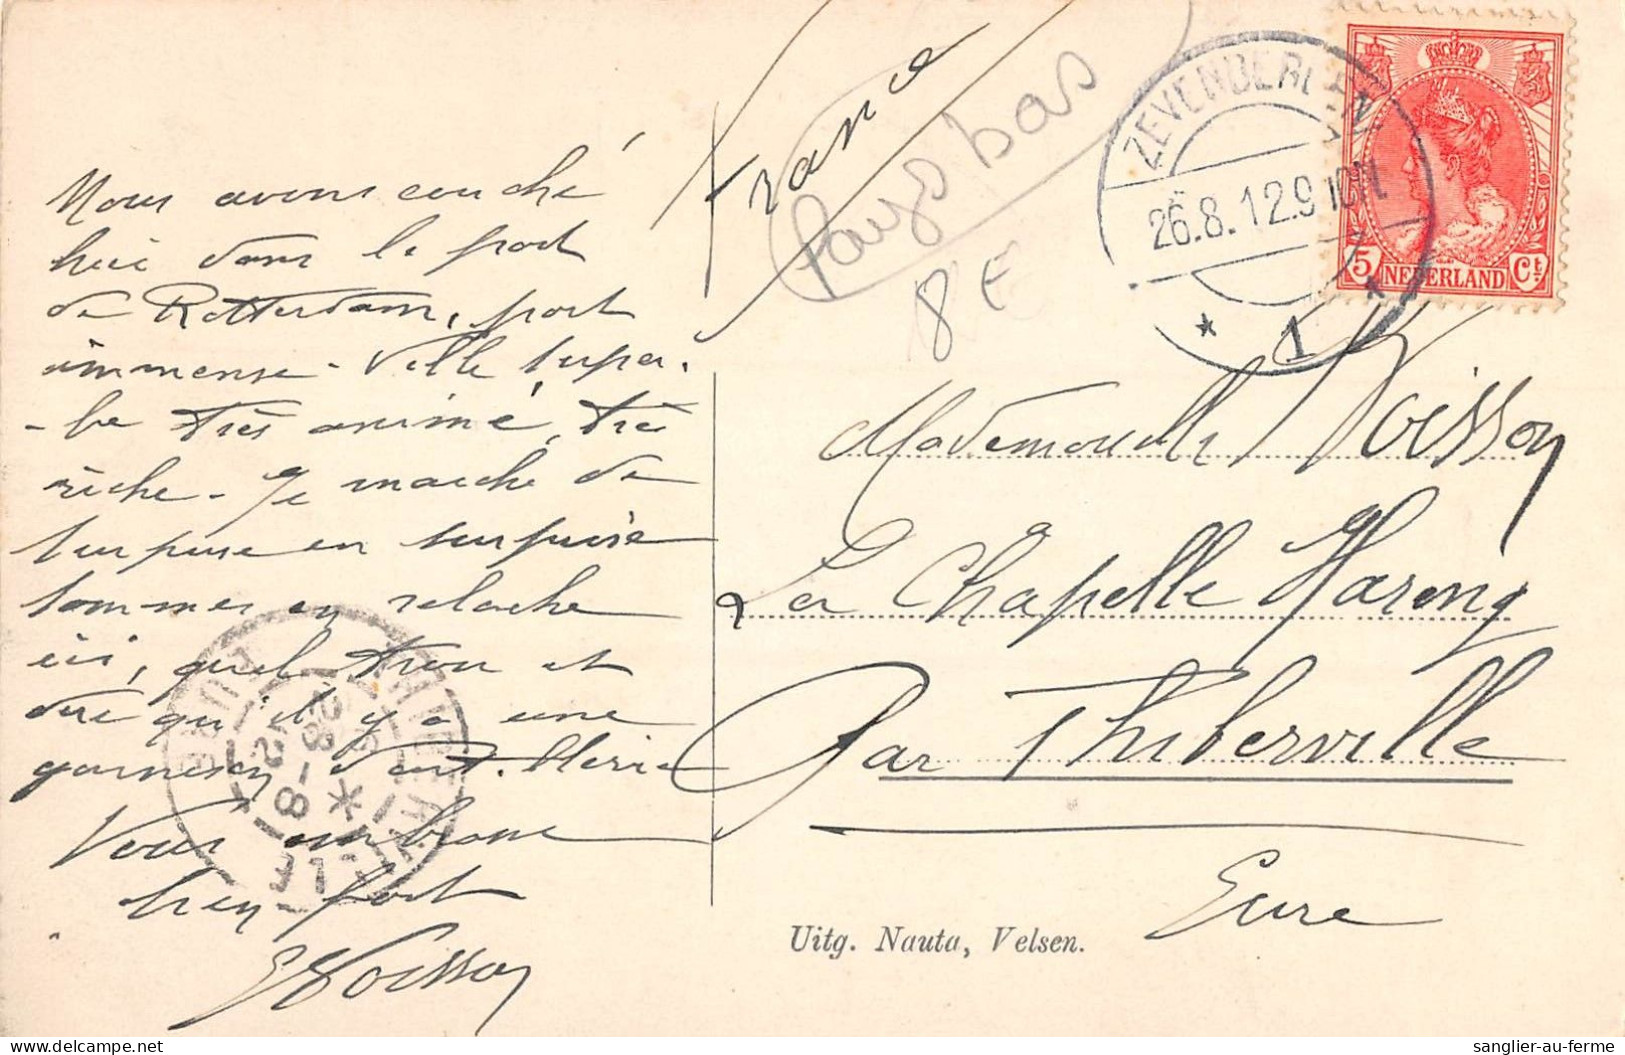 Nous avons couché
hier dans le port
de Rotterdam, port
immense - Ville super-
-be très animé, très
riche - Je marche de
surprise en surprise
sommes en relache
ici, quel trou et
dire qu'il y a une
garnison d'Inf.
Vous embrasse
bien fort
EVoisson
France
Pays bas
8 E
ZEVENBERGEN
26.8.12.9-10N.
1
5 NEDERLAND Ct
Mademoiselle Voisson
La Chapelle Hareng
Par Thiberville
Eure
THIBERVILLE
EURE
28-8
12
Uitg. Nauta, Velsen.
sanglier-au-ferme